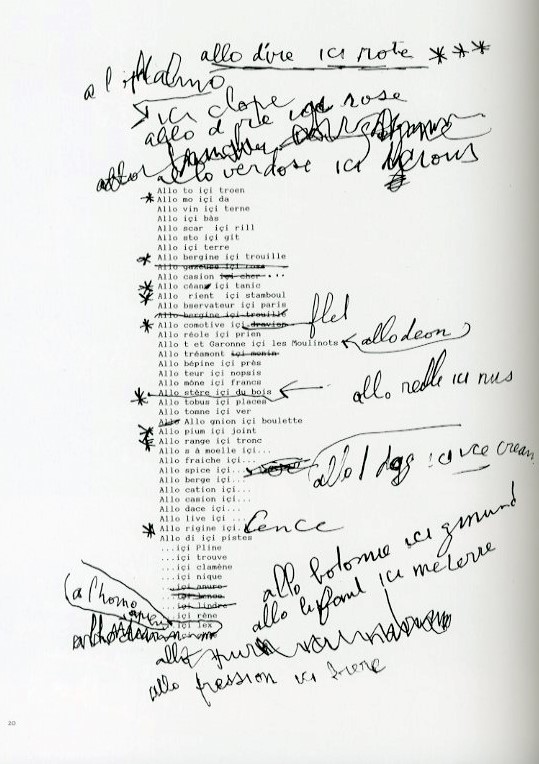 allo dire ici note ***
ici clope
allo dire ici rose
allo verdose ici
Allo to içi troen
* Allo mo içi da
Allo vin içi terne
Allo içi bàs
Allo scar içi rill
Allo sto içi git
Allo içi terre
* Allo bergine içi trouille
Allo gazeuse içi rose
Allo casion içi cher ...
* Allo céan içi tanic
* Allo rient içi stamboul
Allo bservateur içi paris
Allo bergine içi trouille
* Allo comotive içi dravion flet
Allo réole içi prien
Allo t et Garonne içi les Moulinots allodeon
Allo tréamont içi monin
Allo bépine içi près
Allo teur içi nopsis
Allo mône içi francs
* Allo stère içi du bois
allo reille ici nus
Allo tobus içi places
Allo tomne içi ver
Allo Allo gnion içi boulette
* Allo pium içi joint
* Allo range içi tronc
Allo s à moelle içi...
Allo fraiche içi...
Allo spice içi...
allo l dog ici ice cream
Allo berge içi...
Allo cation içi...
Allo casion içi...
Allo dace içi...
Allo live içi ...
* Allo rigine içi. Cence
Allo di içi pistes
...içi Pline
...içi trouve
...içi clamène
...içi nique
...içi anure
...içi
...içi lindre
...içi rène
...içi lex
allo botomie ici gmund
allo lifant ici meterre
allo
allo pression ici frene
20